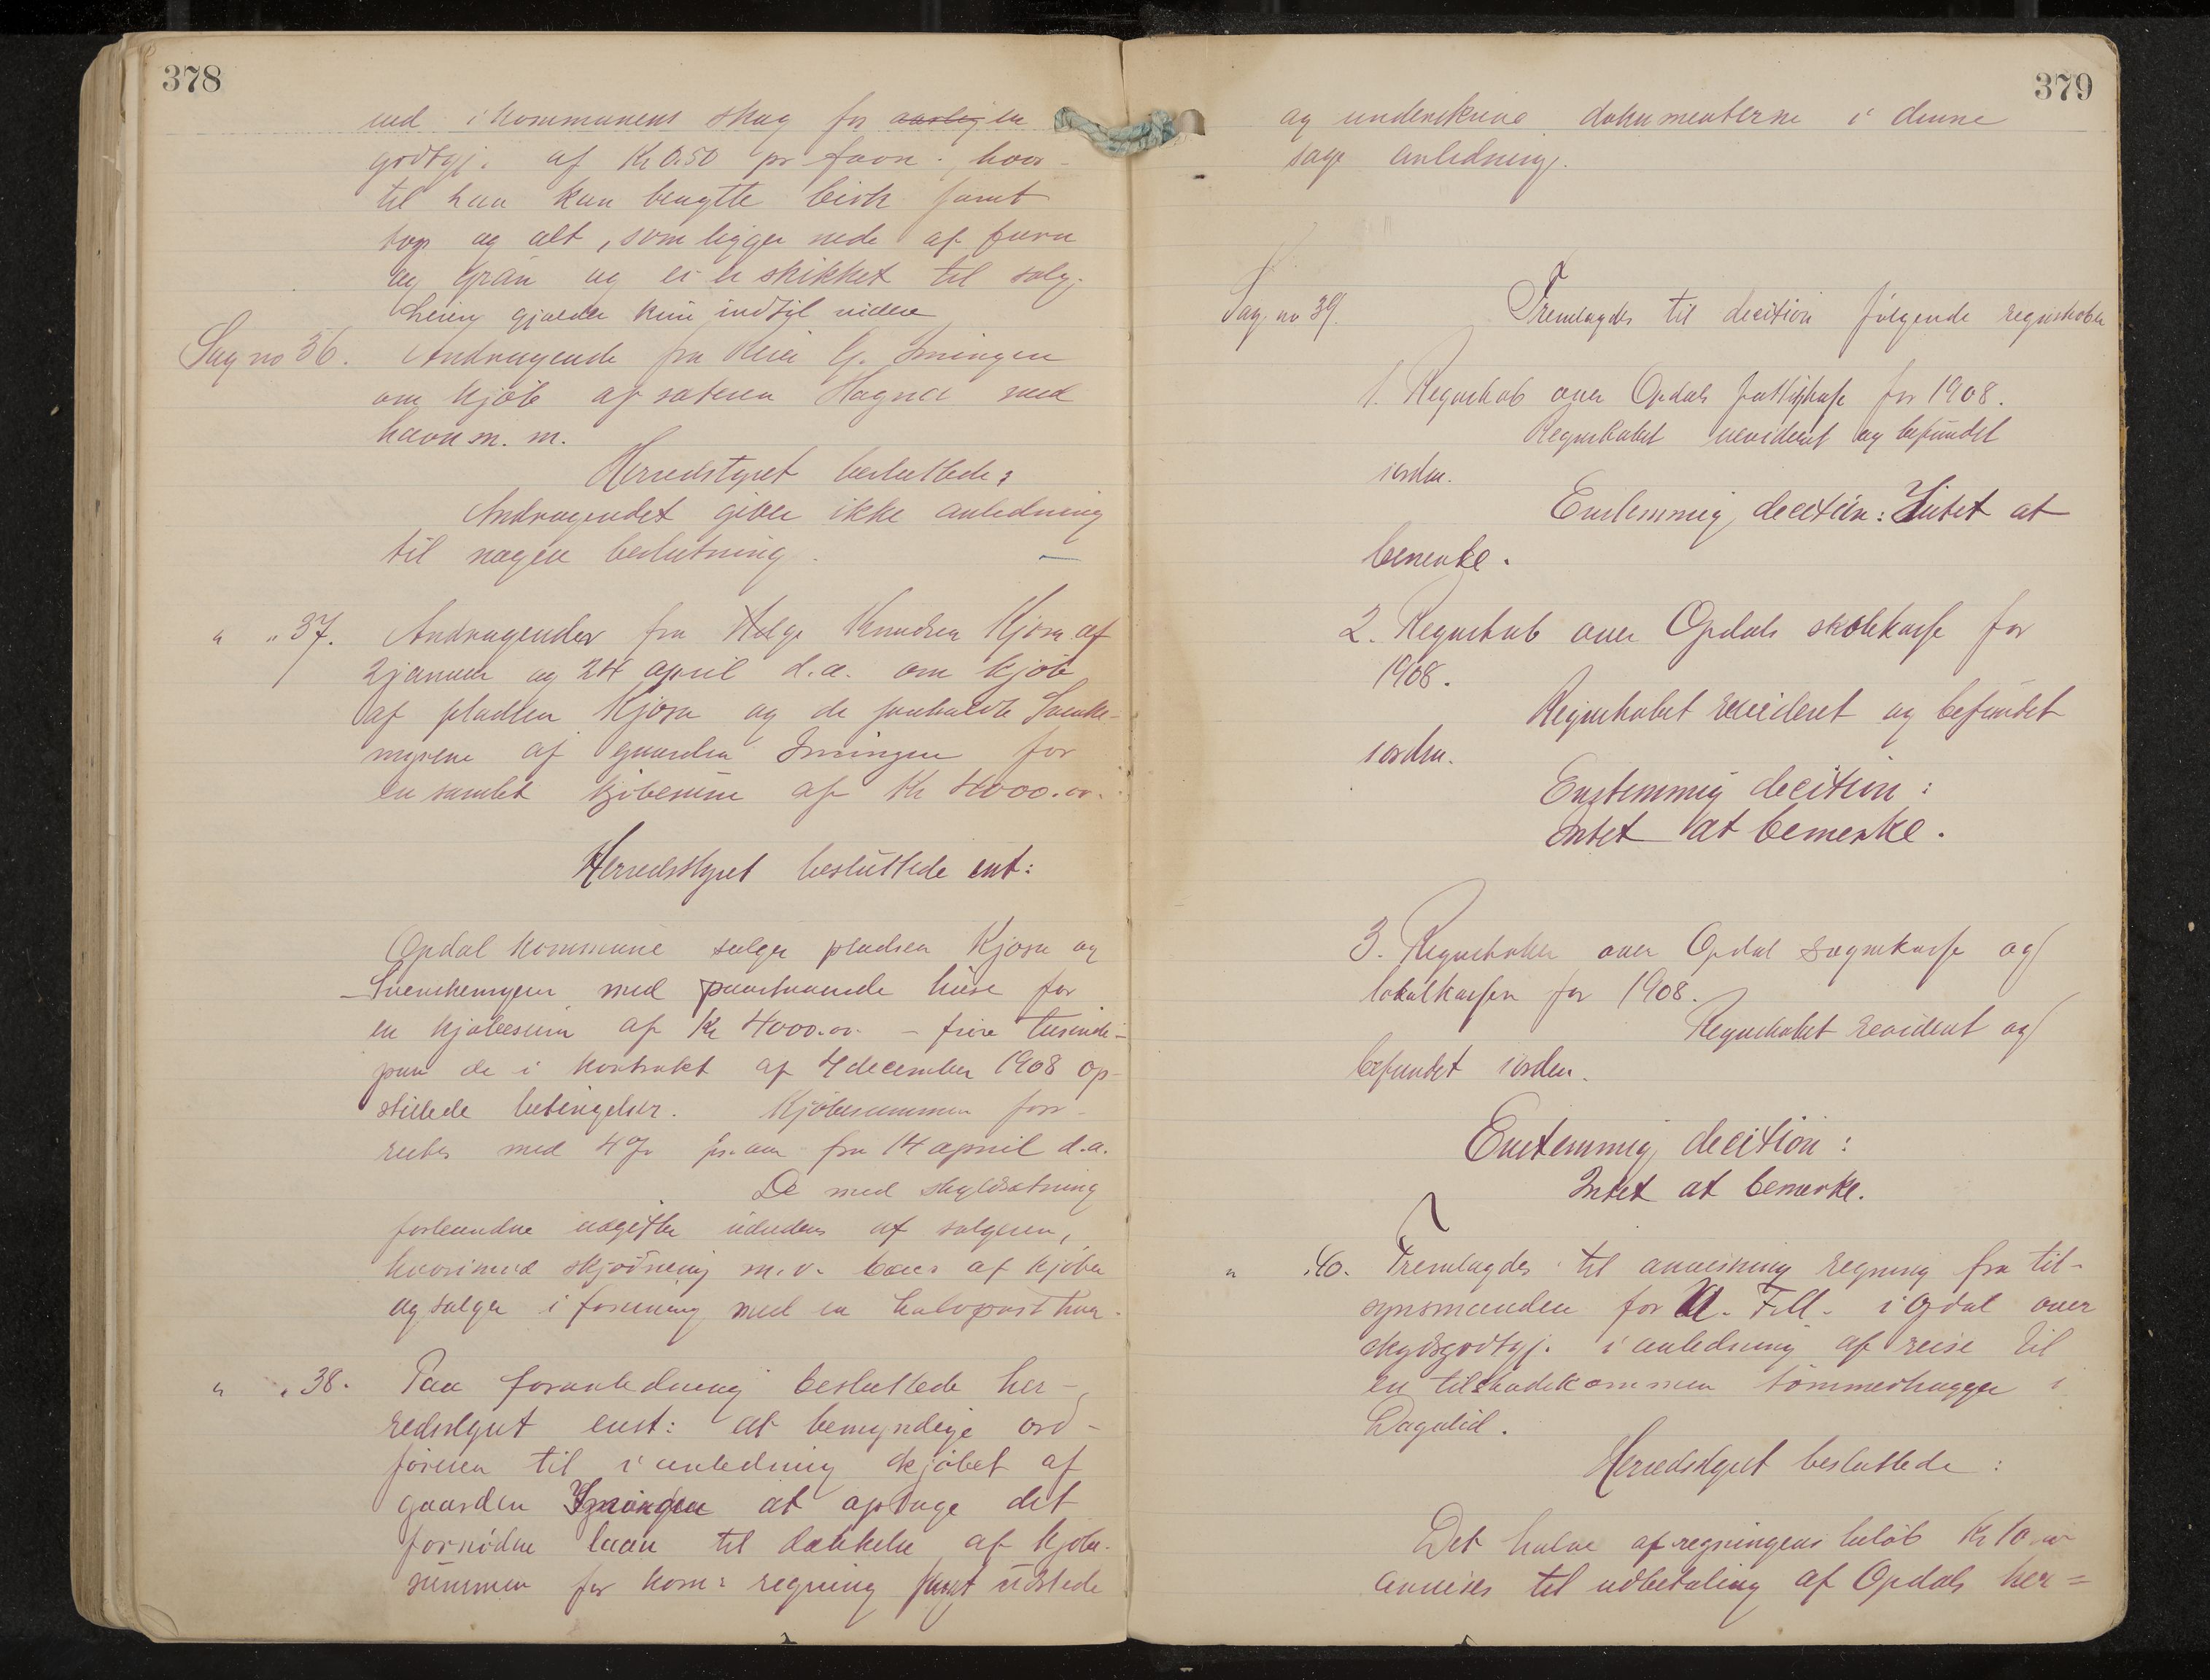 378
ved i kommunens skog for aarlig en
godtgj. af Kr 0.50 pr favn, hvor-
til han kan benytte birk samt
top og alt, som ligger nede af furu
og gran og ei er skikket til salg.
Leien gjælder kun indtil videre
Sag no 36. Andragende fra Reier G. Imingen
om kjøb af sæteren Hagna med
havn m. m.
Herredstyret besluttede:
Andragendet giver ikke anledning
til nogen beslutning.
" " 37. Andragender fra Helge Knudsen Kjøsn af
2 januar og 24 april d.a. om kjøb
af pladsen Kjøsn og de saakaldte Svenke-
myrene af gaarden Imingen for
en samlet kjøbesum af Kr 4000.00.
Herredsstyret besluttede ent:
Opdal kommune sælger pladsen Kjøsn og
Svenkemyren med paastaaende huse for
en kjøbesum af Kr 4000.00 – fire tusinde –
paa de i kontrakt af 4 december 1908 op-
stillede betingelser. Kjøbesummen for-
rentes med 4 % pr. aar fra 14 april d.a.
De med skyldsætning
forbundne udgifter udredes af sælgeren,
hvorimod skjødning m.v. bæres af kjøber
og sælger i forening med en halvpart hver.
" " 38. Paa foranledning besluttede her-
redsstyret enst: at bemyndige ord-
føreren til i anledning kjøbet af
gaarden Imingen at optage det
fornødne laan til dækkelse af kjøbe-
summen for kom: regning samt udstede
379
og underskrive dokumenterne i denne
sags anledning.
Sag no 39. Fremlagdes til decition følgende regnskaber
1. Regnskab over Opdals fattigkasse for 1908.
Regnskabet revideret og befundet
iorden.
Enstemmig decition: Intet at
bemerke.
2. Regnskab over Opdals skolekasse for
1908.
Regnskabet revideret og befundet
iorden.
Enstemmig decition:
Intet at bemerke.
3. Regnskaber over Opdal sognekasse og
lokalkassen for 1908.
Regnskabet revideret og
befundet iorden.
Enstemmig decition:
Intet at bemerke.
" " 40. Fremlagdes til anvisning regning fra til-
synsmanden for U. F. M. i Opdal over
skydsgodtgj. i anledning af reise til
en tilskadekommen tømmerhugger i
Dagalid.
Herredsstyret besluttede:
Det halve af regningens beløb Kr 10.00
anvises til udbetaling af Opdals her=